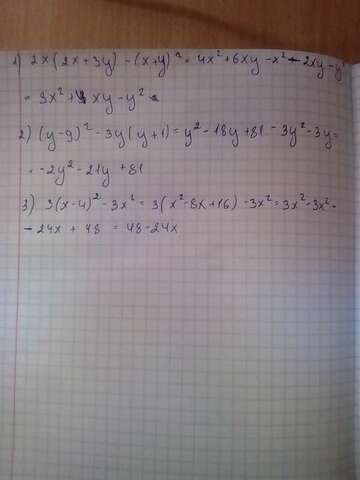 1) 2x(2x+3y) - (x+y)² = 4x²+6xy-x²-2xy-y²
= 3x²+4xy-y²
2) (y-9)² - 3y(y+1) = y²-18y+81-3y²-3y=
= -2y²-21y+81
3) 3(x-4)² - 3x² = 3(x²-8x+16)-3x²=3x²-3x²-
- 24x + 48 = 48-24x